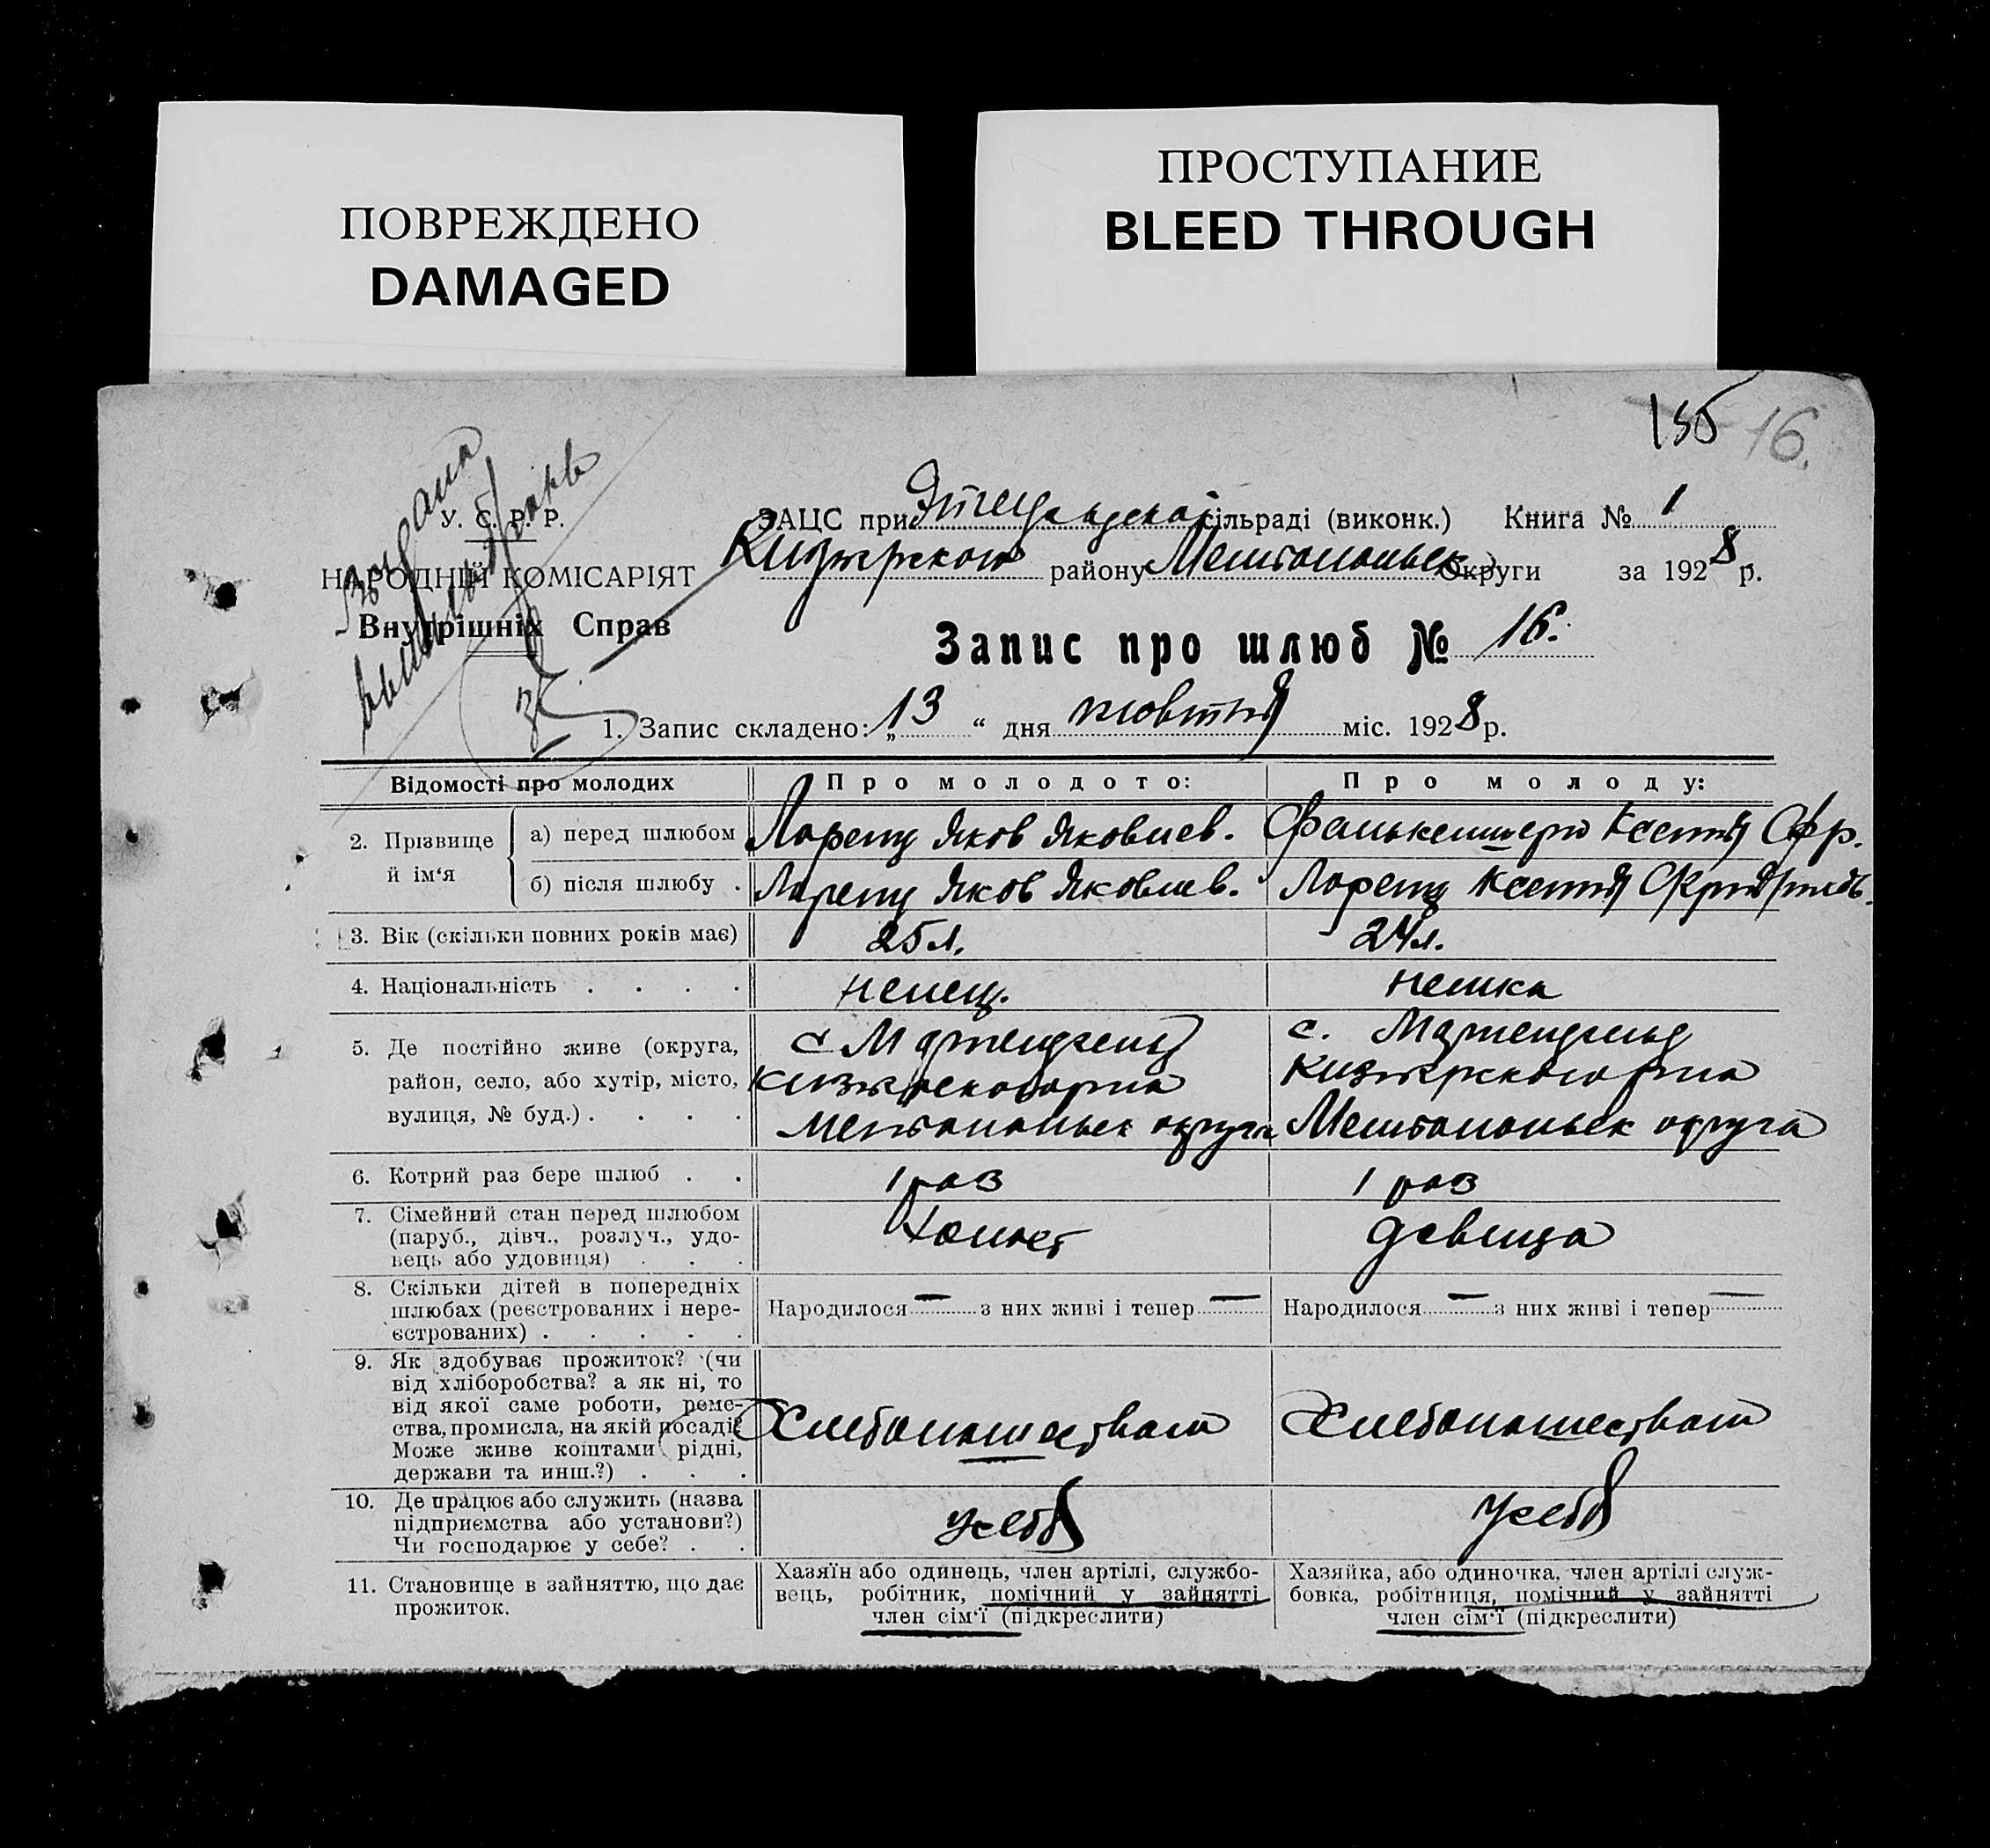 ПОВРЕЖДЕНО
DAMAGED
ПРОСТУПАНИЕ
BLEED THROUGH
155 16.
У. С. Р. Р.
НАРОДНІЙ КОМІСАРІЯТ
Внутрішніх Справ
ЗАЦС при сільраді (виконк.) Книга № 1
району Округи за 1928 р.
Запис про шлюб № 16.
1. Запис складено: „13“ дня жовтня міс. 1928 р.
Відомості про молодих
Про молодого:
Про молоду:
2. Прізвище й ім‘я
а) перед шлюбом
Лоренц Яков Яковлев.
Ксения
б) після шлюбу .
Лоренц Яков Яковлев.
Лоренц Ксения
3. Вік (скільки повних років має)
25 л.
24 л.
4. Національність . . . .
немец.
немка
5. Де постійно живе (округа,
район, село, або хутір, місто,
вулиця, № буд.) . . . .
с
округа
с.
округа
6. Котрий раз бере шлюб . .
1 раз
1 раз
7. Сімейний стан перед шлюбом
(паруб., дівч., розлуч., удо-
вець або удовиця) . . .
Холост
девица
8. Скільки дітей в попередніх
шлюбах (реєстрованих і нере-
єстрованих) . . . . .
Народилося — з них живі і тепер —
Народилося — з них живі і тепер —
9. Як здобуває прожиток? (чи
від хліборобства? а як ні, то
від якої саме роботи, реме-
ства, промисла, на якій посаді?
Може живе коштами рідні,
держави та инш.?) . . .
Хлебопашеством
Хлебопашеством
10. Де працює або служить (назва
підприємства або установи?)
Чи господарює у себе? . .
у себя
у себя
11. Становище в зайняттю, що дає
прожиток.
Хазяїн або одинець, член артілі, службо-
вець, робітник, помічний у зайнятті
член сім‘ї (підкреслити)
Хазяйка, або одиночка, член артілі служ-
бовка, робітниця, помічний у зайнятті
член сім‘ї (підкреслити)